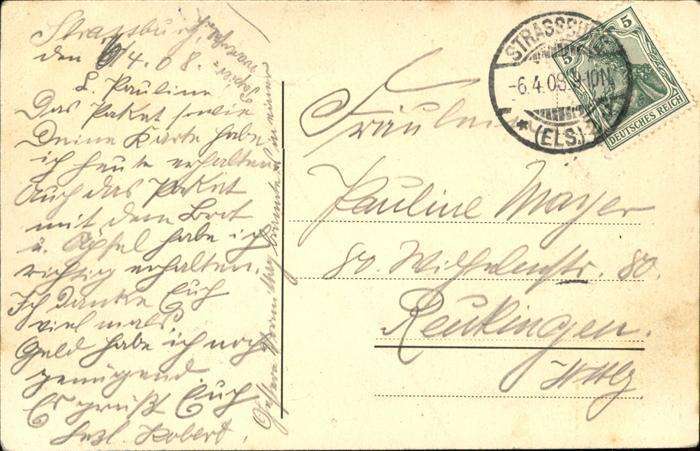 Strassburg,
den 6/4.08.
L. Pauline
Das Paket sowie
Deine Karte habe
ich heute erhalten
Auch das Paket
mit dem Brot
u. Äpfel habe ich
richtig erhalten.
Ich danke Euch
viel mals
Geld habe ich noch
genügend
Es grüßt Euch
herzl. Robert.
Gestern
STRASSBURG
-6.4.08. 9-10N.
* (ELS.) 3
5
5
DEUTSCHES REICH
Fräulein
Pauline Mayer
80. Wilhelmstr. 80.
Reutlingen.
Wttbg